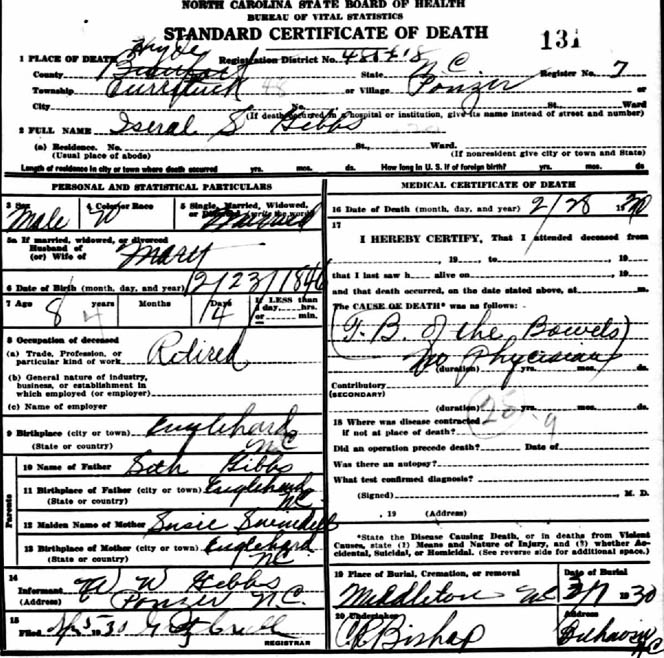 NORTH CAROLINA STATE BOARD OF HEALTH
BUREAU OF VITAL STATISTICS
STANDARD CERTIFICATE OF DEATH
131
1 PLACE OF DEATH Hyde Registration District No. State N C Register No. 7
County Beaufort
Township Currituck or Village Ponzer or
City No. St. Ward
(If death occurred in a hospital or institution, give its name instead of street and number)
2 FULL NAME Iseral S Gibbs
(a) Residence. No. St., Ward.
(Usual place of abode) (If nonresident give city or town and State)
Length of residence in city or town where death occurred yrs. mos. ds. How long in U. S. if of foreign birth? yrs. mos. ds.
PERSONAL AND STATISTICAL PARTICULARS
3 Sex 4 Color or Race 5 Single, Married, Widowed, or Divorced (write the word)
Male W Married
5a If married, widowed, or divorced
Husband of
(or) Wife of Mary
6 Date of Birth (month, day, and year) 2/23/1846
7 Age years Months Days If LESS than 1 day, hrs. or min.
84 4
8 Occupation of deceased
(a) Trade, Profession, or particular kind of work Retired
(b) General nature of industry, business, or establishment in which employed (or employer)
(c) Name of employer
9 Birthplace (city or town) Englehard
(State or country) NC
Parents
10 Name of Father Seth Gibbs
11 Birthplace of Father (city or town) Englehard
(State or country) NC
12 Maiden Name of Mother Susie Swindell
13 Birthplace of Mother (city or town) Englehard
(State or country) NC
14
Informant W W Gibbs
(Address) Ponzer N.C.
15
Filed 19 30
REGISTRAR
MEDICAL CERTIFICATE OF DEATH
16 Date of Death (month, day, and year) 2/28 1930
17
I HEREBY CERTIFY, That I attended deceased from
, 19 to , 19
that I last saw h alive on , 19
and that death occurred, on the date stated above, at m.
The CAUSE OF DEATH* was as follows:
(T. B. of the Bowels)
No Physician
(duration) yrs. mos. ds.
Contributory
(SECONDARY)
(duration) yrs. mos. ds.
18 Where was disease contracted
if not at place of death?
Did an operation precede death? Date of
Was there an autopsy?
What test confirmed diagnosis?
(Signed) , M. D.
, 19 (Address)
*State the Disease Causing Death, or in deaths from Violent Causes, state (1) Means and Nature of Injury, and (2) whether Accidental, Suicidal, or Homicidal. (See reverse side for additional space.)
19 Place of Burial, Cremation, or removal Date of Burial
Middleton NC 1930
20 Undertaker Address
Bishop Belhaven
NC